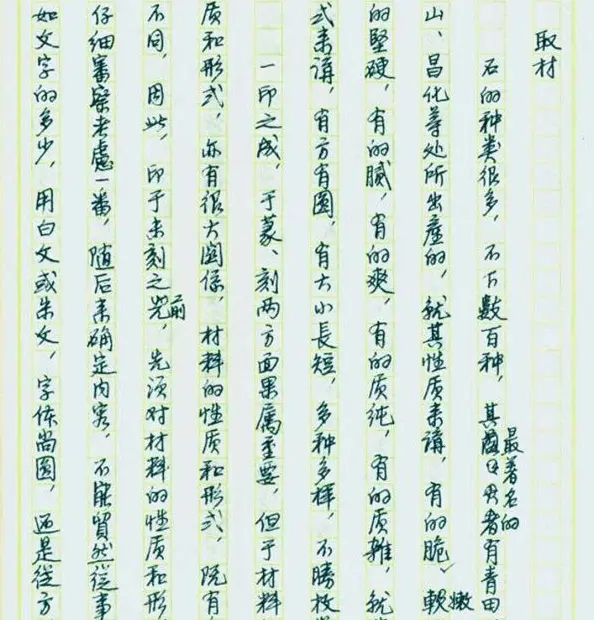 取材
石的种类很多，不下数百种，其最著名的有青田
山、昌化等处所出產的，就其性质来講，有的脆、軟嫩
的堅硬，有的膩，有的爽，有的质纯，有的质雜，就
式来講，有方有圓，有大小長短，多种多样，不勝枚
一印之成，于篆、刻两方面果属重要，但于材料
质和形式，亦有很大関係，材料的性质和形式，既有
不同，因此，印于未刻之前，先須对材料的性质和形
仔细審察考慮一番，随后来确定内容，不能貿然從事
如文字的多少，用白文或朱文，字体尚圓，还是從方